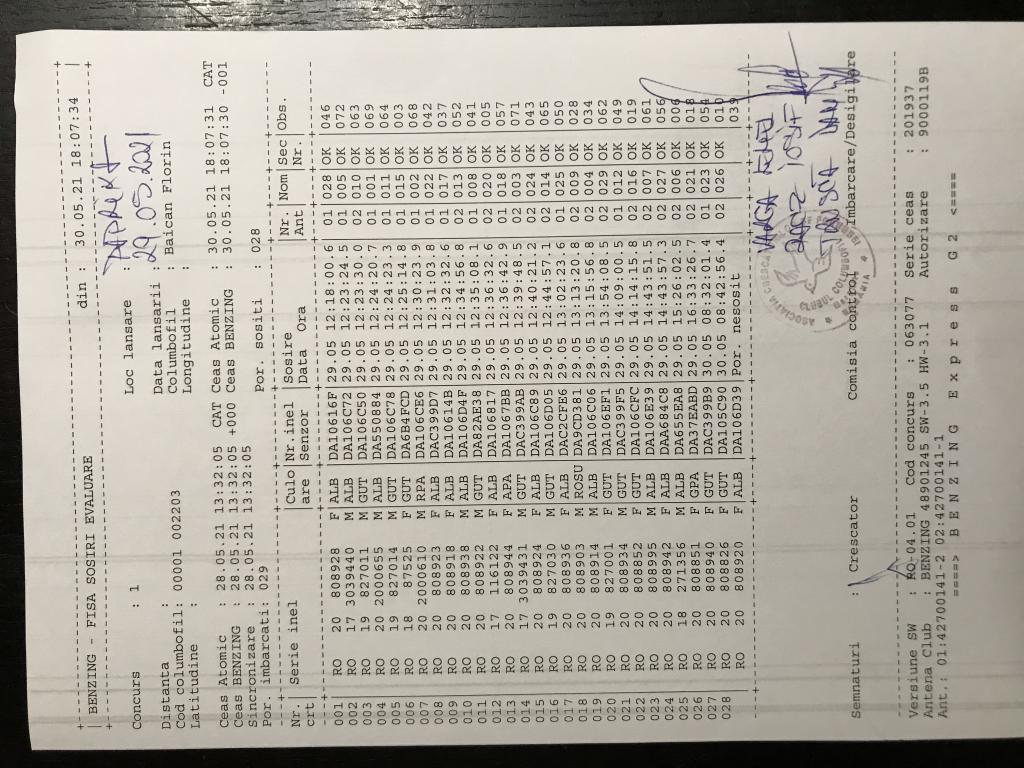 BENZING - FISA SOSIRI EVALUARE din : 30.05.21 18:07:34
Concurs : 1 Loc lansare : APAHIDA
Distanta : Data lansarii : 29.05.2021
Cod columbofil: 00001 002203 Columbofil : Baican Florin
Latitudine : Longitudine :
Ceas Atomic : 28.05.21 13:32:05 CAT Ceas Atomic : 30.05.21 18:07:31 CAT
Ceas BENZING : 28.05.21 13:32:05 +000 Ceas BENZING : 30.05.21 18:07:30 -001
Sincronizare : 28.05.21 13:32:05
Por. imbarcati: 029 Por. sositi : 028
Nr. Serie inel Culo Nr.inel Sosire Nr. Nom Sec Obs.
crt are Senzor Data Ora Ant Nr.
001 RO 20 808928 F ALB DA10616F 29.05 12:18:00.6 01 028 OK 046
002 RO 17 3039440 M ALB DA106C72 29.05 12:23:24.5 01 005 OK 072
003 RO 19 827011 M GUT DA106C50 29.05 12:23:30.0 02 010 OK 063
004 RO 20 2000655 M ALB DA550884 29.05 12:24:20.7 01 001 OK 069
005 RO 19 827014 M GUT DA106C78 29.05 12:24:23.3 02 011 OK 064
006 RO 18 87525 F GUT DA6B4FCD 29.05 12:25:14.8 02 015 OK 003
007 RO 20 2000610 M RPA DA106CE6 29.05 12:30:23.9 01 002 OK 068
008 RO 20 808923 F ALB DAC399D7 29.05 12:31:03.8 01 022 OK 042
009 RO 20 808918 F ALB DA10614B 29.05 12:32:32.6 01 017 OK 037
010 RO 20 808938 M ALB DA106D4F 29.05 12:34:56.8 02 013 OK 052
011 RO 20 808922 M GUT DA82AE38 29.05 12:35:08.1 01 008 OK 041
012 RO 17 116122 F ALB DA106817 29.05 12:36:32.6 02 020 OK 005
013 RO 20 808944 F APA DA1067BB 29.05 12:36:42.9 01 018 OK 057
014 RO 17 3039431 M GUT DAC399AB 29.05 12:39:48.5 02 003 OK 071
015 RO 20 808924 F ALB DA106C89 29.05 12:40:41.2 02 024 OK 043
016 RO 19 827030 M GUT DA106D05 29.05 12:44:57.1 02 014 OK 065
017 RO 20 808936 F ALB DAC2CFE6 29.05 13:02:23.6 01 025 OK 050
018 RO 20 808903 M ROSU DA9CD381 29.05 13:13:20.8 02 009 OK 028
019 RO 20 808914 M ALB DA106C06 29.05 13:15:56.8 02 004 OK 034
020 RO 19 827001 F GUT DA106EF1 29.05 13:54:08.5 02 029 OK 062
021 RO 20 808934 F GUT DAC399F5 29.05 14:09:00.5 01 012 OK 049
022 RO 20 808852 M GUT DA106CFC 29.05 14:14:15.8 02 016 OK 019
023 RO 20 808995 M ALB DA106E39 29.05 14:43:51.5 02 007 OK 061
024 RO 20 808942 M ALB DAA684C8 29.05 14:43:57.3 02 027 OK 056
025 RO 18 271356 M ALB DA655EA8 29.05 15:26:02.5 02 006 OK 006
026 RO 20 808851 F GPA DA37EABD 29.05 16:33:26.7 02 021 OK 018
027 RO 20 808940 F GUT DAC399B9 30.05 08:32:01.4 01 023 OK 054
028 RO 20 808826 F GUT DA105C90 30.05 08:42:56.4 02 026 OK 010
RO 20 808920 F ALB DA106D39 Por. nesosit 039
IOSIF
Semnaturi : Crescator Comisia control Imbarcare/Desigilare
Versiune SW : RO-04.01 Cod concurs : 063077 Serie ceas : 201937
Antena Club : BENZING 48901245 SW-3.5 HW-3.1 Autorizare : 9000119B
Ant.: 01:42700141-2 02:42700141-1
====> B E N Z I N G E x p r e s s G 2 <====